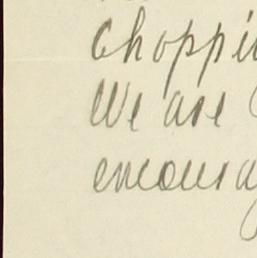 choppi
We are
encoura